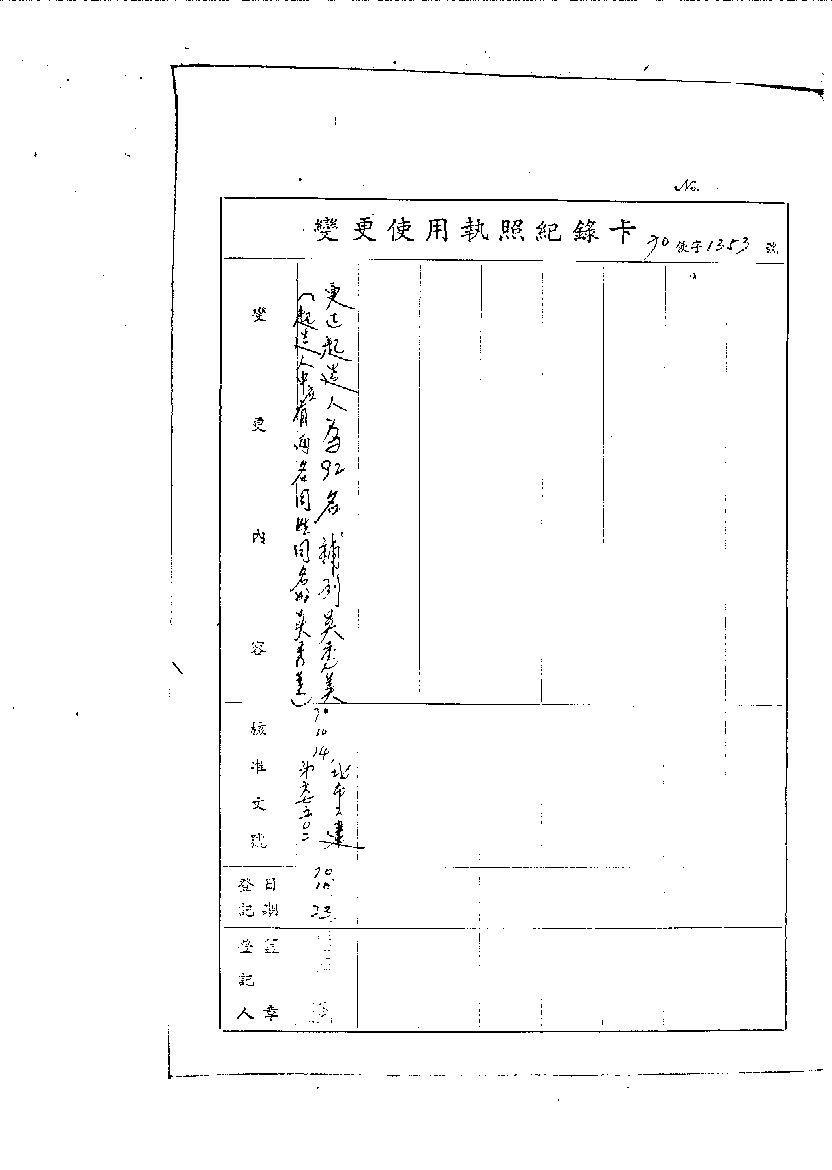 No.
變更使用執照紀錄卡 70使字1353號
變更內容
更正起造人為92名 補列吳秀美
(起造人中有兩名同姓同名均吳秀美)
核准文號
70 10 14 北市工建
第六七五〇二
登記日期
70 10 23
登記人蓋章